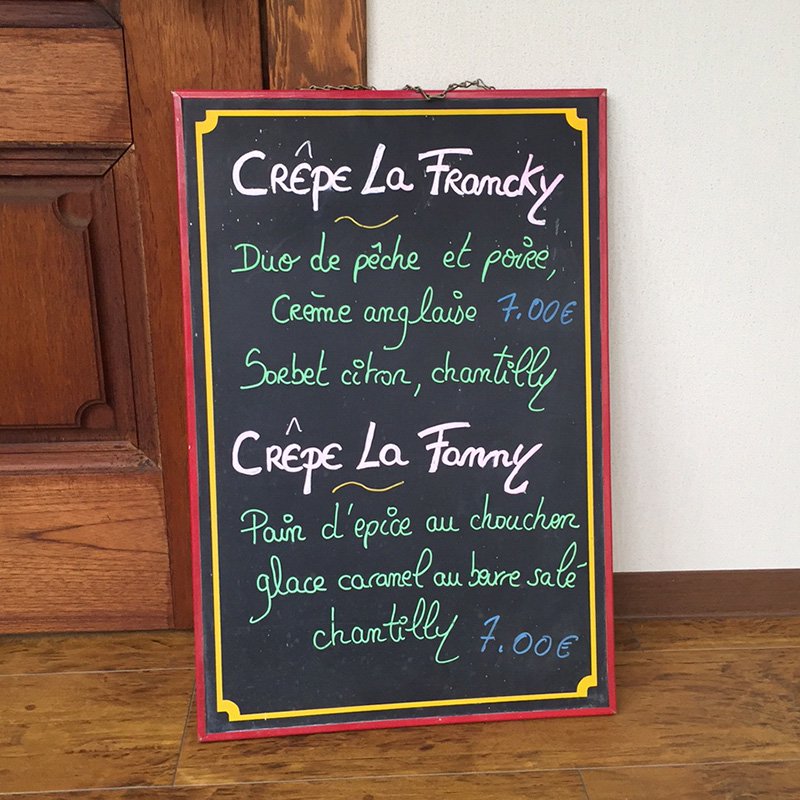 CRÊPE La FRancky
Duo de pêche et poire,
Crème anglaise 7.00€
Sorbet citron, chantilly
CRÊPE La Fanny
Pain d'épice au chouchen
glace caramel au burre salé
chantilly 7.00€